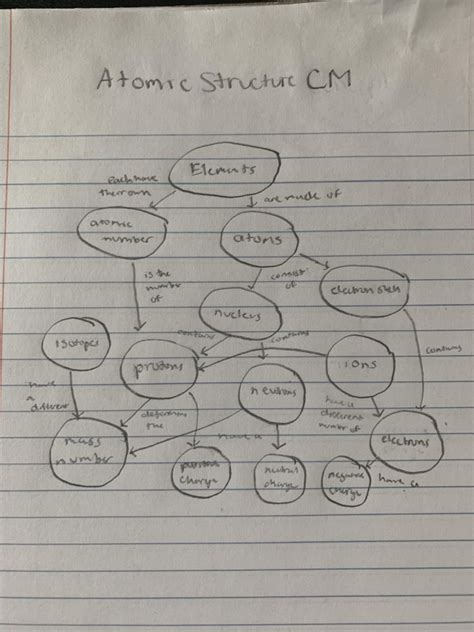 Atomic Structure CM
Elements
each have
their own
are made of
atomic
number
atoms
is the
number
of
consist
of
electron shell
nucleus
contains
contains
contains
isotopes
protons
neutrons
ions
have
a
different
determines
the
have a
have a
different
number of
electrons
mass
number
positive
charge
neutral
charge
negative
charge
have a